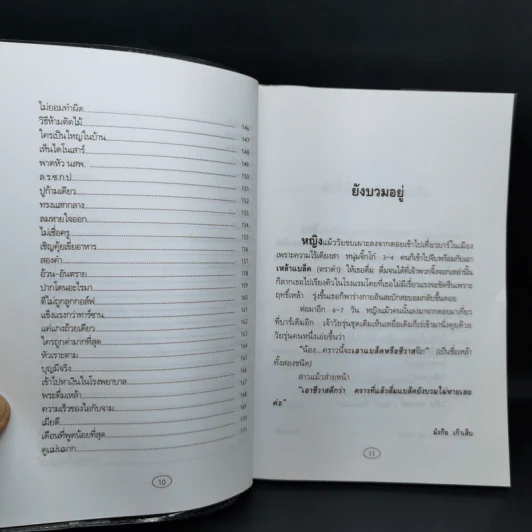 ไม่ยอมทำผิด 146
วิธีห้ามตัดไม้ 147
ใครเป็นใหญ่ในบ้าน 148
เห็นไดโนเสาร์ 149
พาดหัว นสพ. 150
ล.ร.ซ.ก.ป 151
ปูก้ามเดียว 152
ทรงแสกกลาง 153
ลมหายใจออก 154
ไม่เชื่อครู 155
เชิญคุ้ยเขี่ยอาหาร 156
สองคำ 157
อ้วน-อันตราย 158
ปากโดนอะไรมา 159
ตีไม่ถูกลูกกอล์ฟ 160
แข็งแรงกว่าทาร์ซาน 161
แค่แกงถ้วยเดียว 162
ใครถูกด่ามากที่สุด 163
หัวเราะตาม 164
บุญมีจริง 165
เข้าไปหาเงินในโรงพยาบาล 166
พระดื่มเหล้า 167
ความเร็วของไอกับจาม 168
เมียดี 169
เดือนที่พูดน้อยที่สุด 170
ดูแม่นมาก 171
10
ยังบวมอยู่
หญิงแม้ววัยขบเผาะลงจากดอยเข้าไปเที่ยวบาร์ในเมือง
เพราะความไร้เดียงสา หนุ่มจิ๊กโก๋ 3-4 คนก็เข้าไปจีบพร้อมกับเอา
เหล้าแบล็ค (ตราดำ) ให้เธอดื่ม ดื่มจนได้ที่เจ้าพวกจิ้งจอกเหล่านั้น
ก็ลากเธอไปเรียงคิวในโรงแรมโดยที่เธอไม่มีเรี่ยวแรงจะขัดขืนเพราะ
ฤทธิ์เหล้า รุ่งขึ้นเธอก็พาร่างกายอันสะบักสะบอมกลับขึ้นดอย
ต่อมาอีก 6-7 วัน หญิงแม้วคนนั้นลงมาจากดอยมาเที่ยว
ที่บาร์เดิมอีก เจ้าวัยรุ่นชุดเดิมเห็นเหยื่อเดิมก็เร่เข้ามานั่งคุยด้วย
วัยรุ่นคนหนึ่งเอ่ยขึ้นว่า
"น้อง...คราวนี้จะเอาแบล็คหรือชีวาสจ๊ะ" (เป็นชื่อเหล้า
ทั้งสองชนิด)
สาวแม้วส่ายหน้า
"เอาชีวาสดีกว่า คราวที่แล้วดื่มแบล็คยังบวมไม่หายเลย
ค่ะ"
มังกือ เก๊าเจ็ง
11